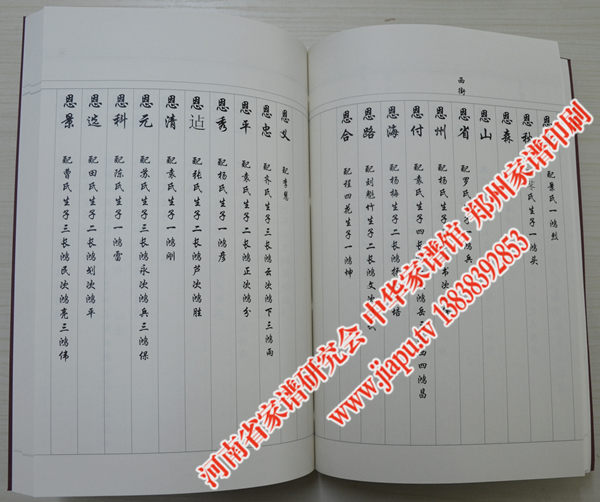 西街
恩
配景氏一鸿烈
恩秋
氏生子一鸿头
恩森
恩山
恩省
配罗氏生子一鸿兵
恩州
配杨氏生子二长鸿
恩付
配袁氏生子四长鸿
岳
四鸿昌
恩海
配杨梅生子二长鸿
培
恩路
配刘魁竹生子二长鸿文次
恩合
配程四花生子一鸿坤
恩义
配李慧
恩忠
配齐氏生子三长鸿云次鸿下三鸿雨
恩平
配袁氏生子二长鸿正次鸿分
恩秀
配杨氏生子一鸿彦
恩迠
配张氏生子二长鸿芦次鸿胜
恩清
配袁氏生子一鸿刚
恩元
配苏氏生子三长鸿永次鸿兵三鸿保
恩科
配陈氏生子一鸿雷
恩选
配田氏生子二长鸿划次鸿平
恩景
配曹氏生子三长鸿民次鸿亮三鸿伟
河南省家谱研究会 中华家谱馆 郑州家谱印刷
www.jiapu.tv 13838392853